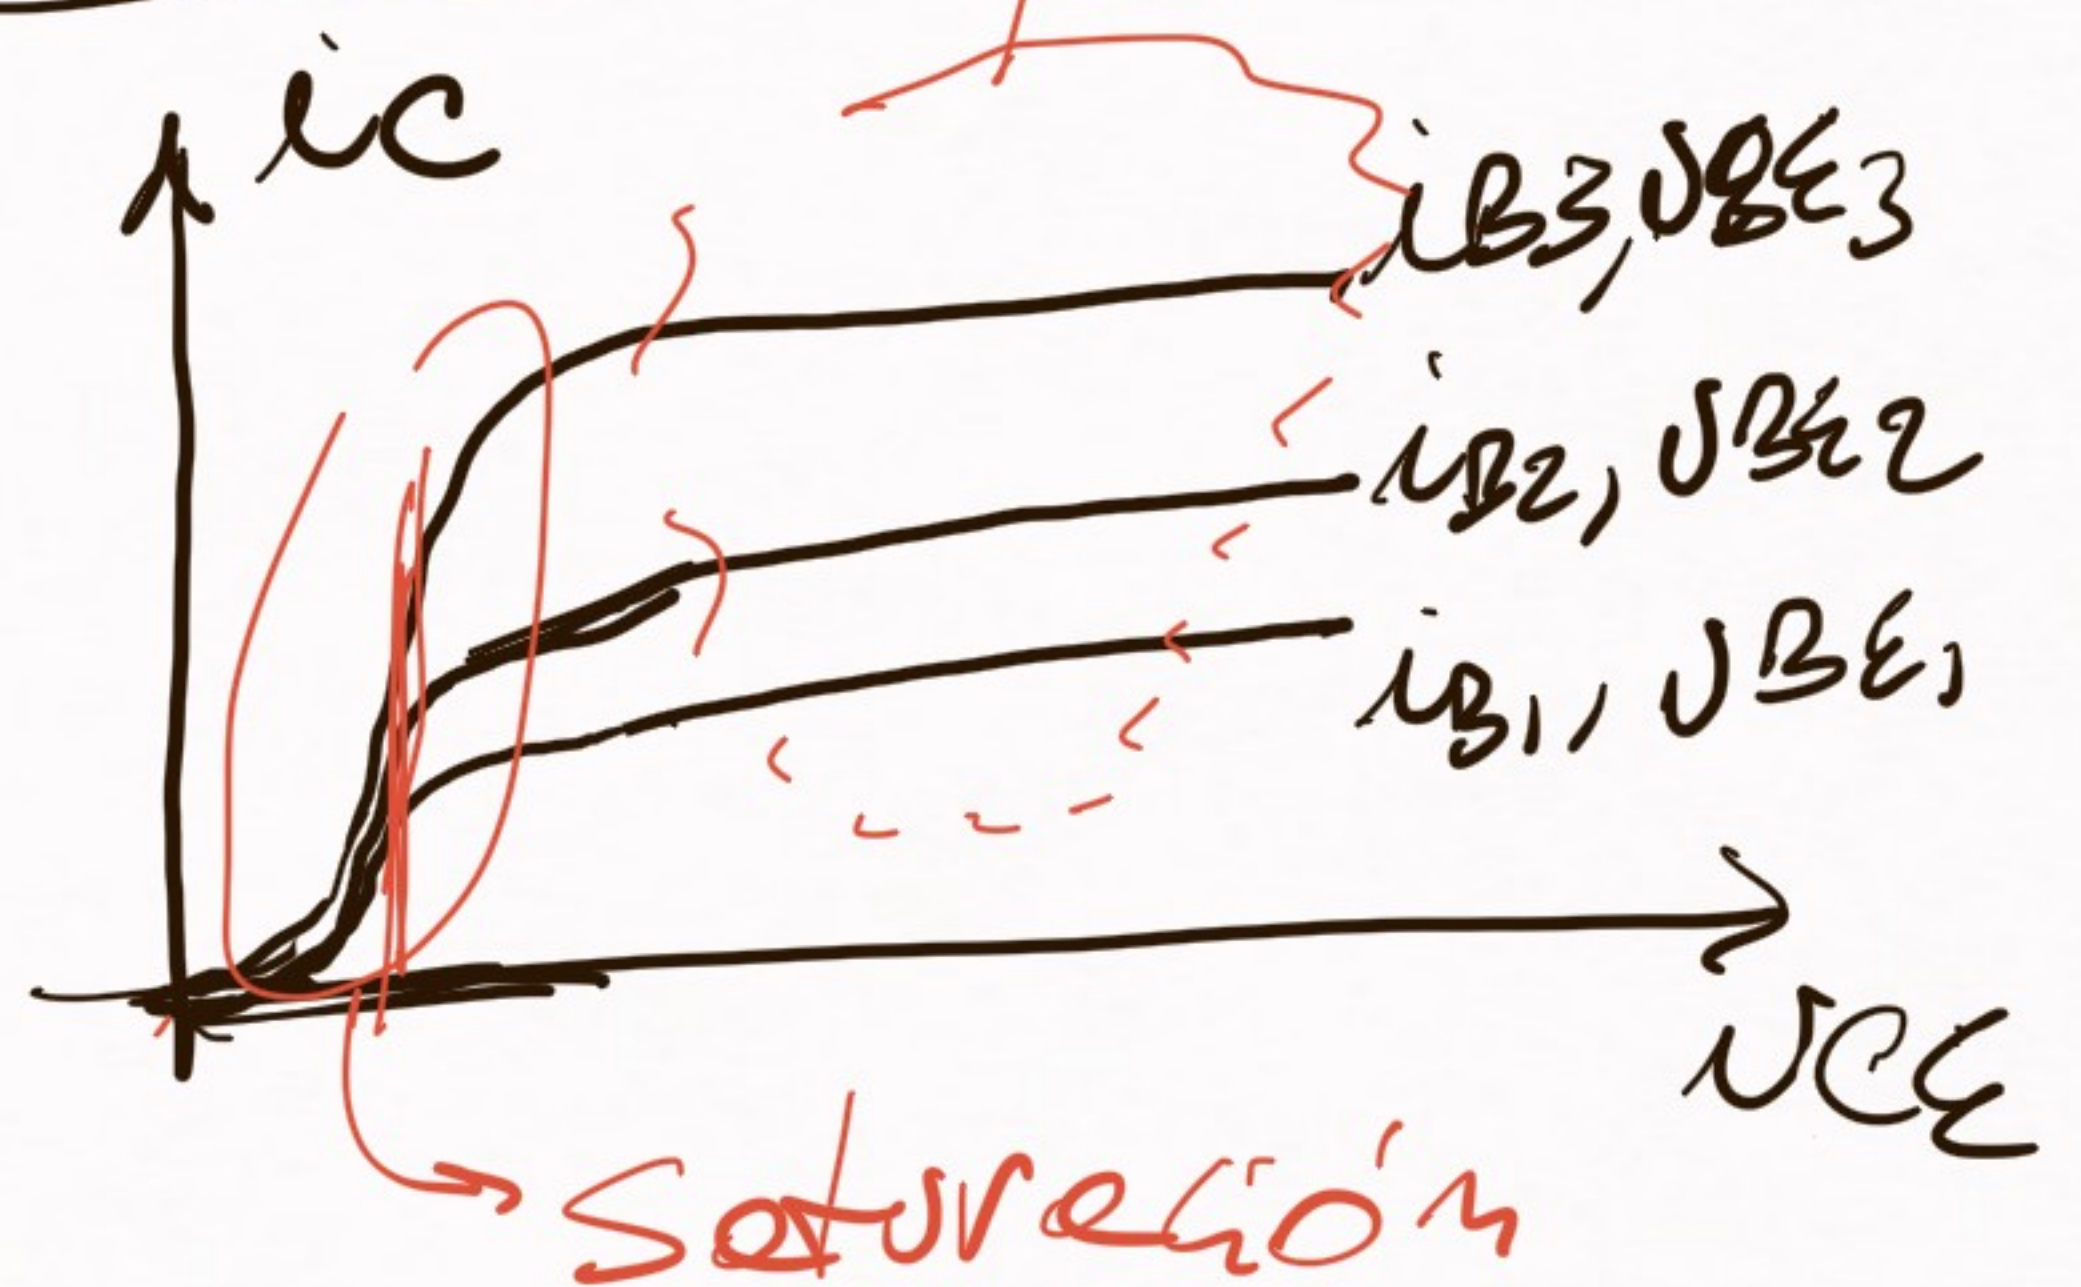 iC
iB3, vBE3
iB2, vBE2
iB1, vBE1
vCE
Saturación